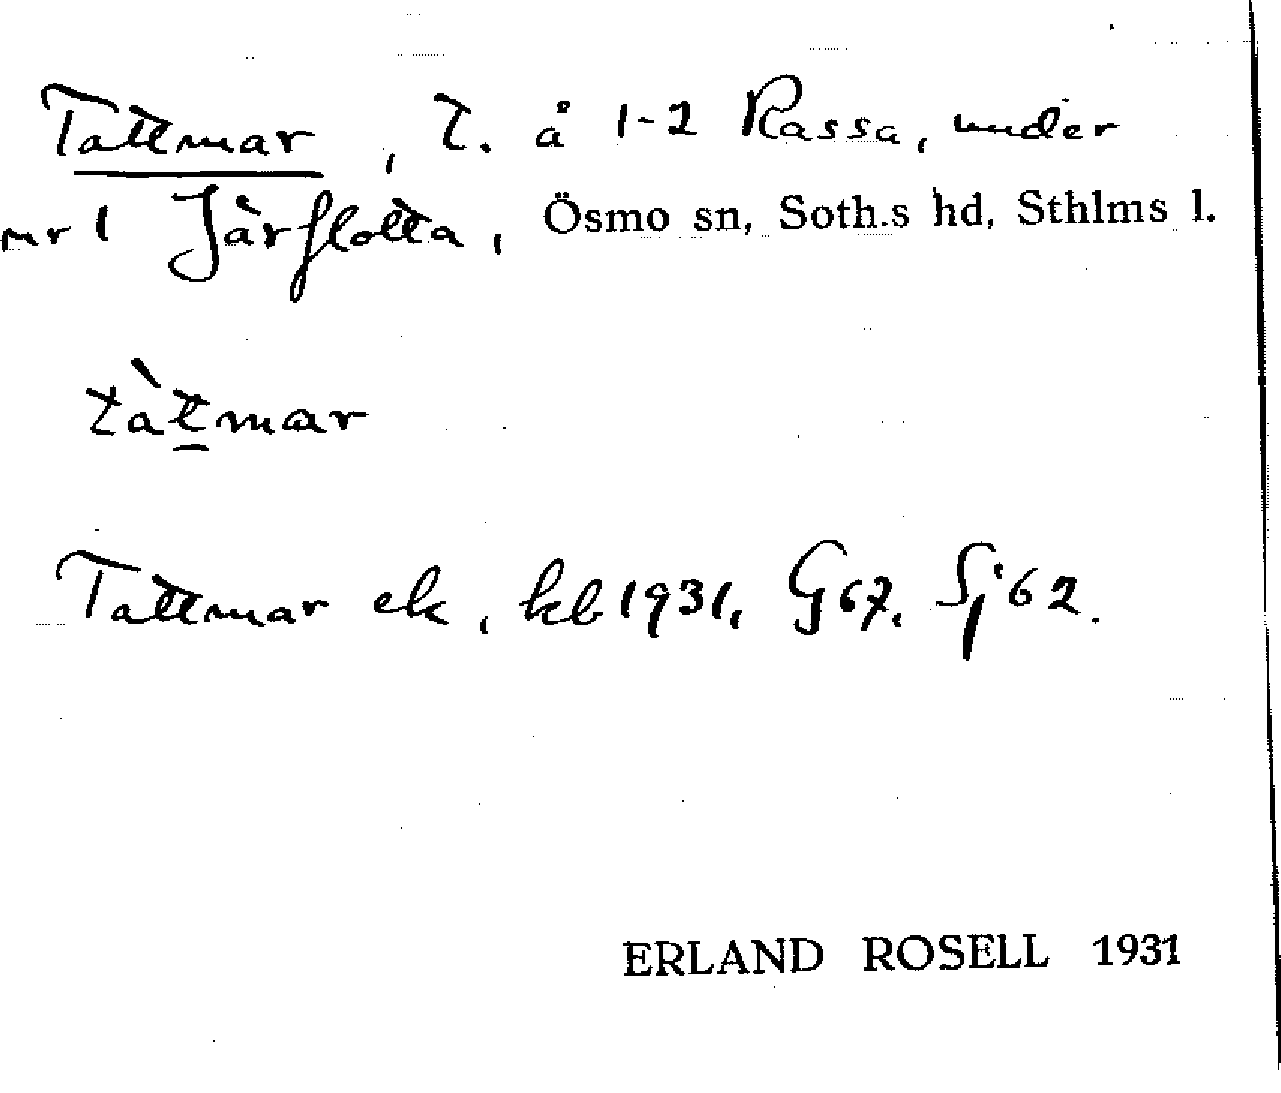 Tattmar, t. å 1-2 Rassa, under
nr 1 Järflotta, Ösmo sn, Soth.s hd, Sthlms l.
tàt̲mar
Tattmar ek, kb 1931, G 67, Sj 62.
ERLAND ROSELL 1931